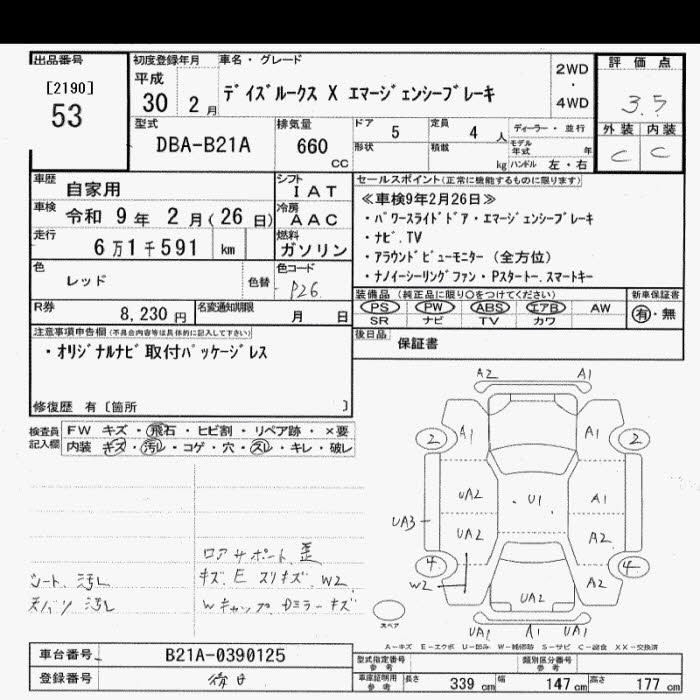 出品番号
[2190]
53
初度登録年月
平成
30 2月
車名・グレード
デイズルークス X エマージェンシーブレーキ
2WD
・
4WD
評価点
3.5
外装 内装
C C
型式
DBA-B21A
排気量
660
CC
ドア 5 定員 4 人 ディーラー・並行
形状 積載 kg モデル年式 年
ハンドル 左・右
車歴 自家用
シフト IAT
車検 令和 9年 2月(26日)
冷房 AAC
走行 6万1千591 km
燃料 ガソリン
色 レッド 色替
色コード P26
R券 8,230円 名変通知期限 月 日
セールスポイント(正常に機能するものに限ります)
≪車検9年2月26日≫
・パワースライドドア・エマージェンシーブレーキ
・ナビ.TV
・アラウンドビューモニター (全方位)
・ナノイーシーリングファン・Pスタート-.スマートキー
装備品 (純正品に限り○をつけてください)
PS PW ABS エアB AW
SR ナビ TV カワ
新車保証書
有・無
後日品 保証書
注意事項申告欄(不具合内容等は具体的に記入して下さい)
・オリジナルナビ取付パッケージレス
修復歴 有〔箇所 〕
検査員記入欄
FW キズ・飛石・ヒビ割・リペア跡・×要
内装 キズ・汚レ・コゲ・穴・スレ・キレ・破レ
シート 汚レ
天ハリ 汚レ
ロアサポート 歪
キズ E スリキズ W2
Wキャップ Dミラーキズ
A2 A1
2 A1 A1 2
UA2 U1 A1
UA3 UA2 A2
4 W2 UA2 A2 4
UA1 A1 UA1
スペア
A-キズ E-エクボ U-凹み W-補修跡 S-サビ C-腐食 XX-交換済
車台番号 B21A-0390125
登録番号
型式指定番号 参考
類別区分番号 参考
車庫証明用 参考 長さ 339cm 幅 147cm 高さ 177cm